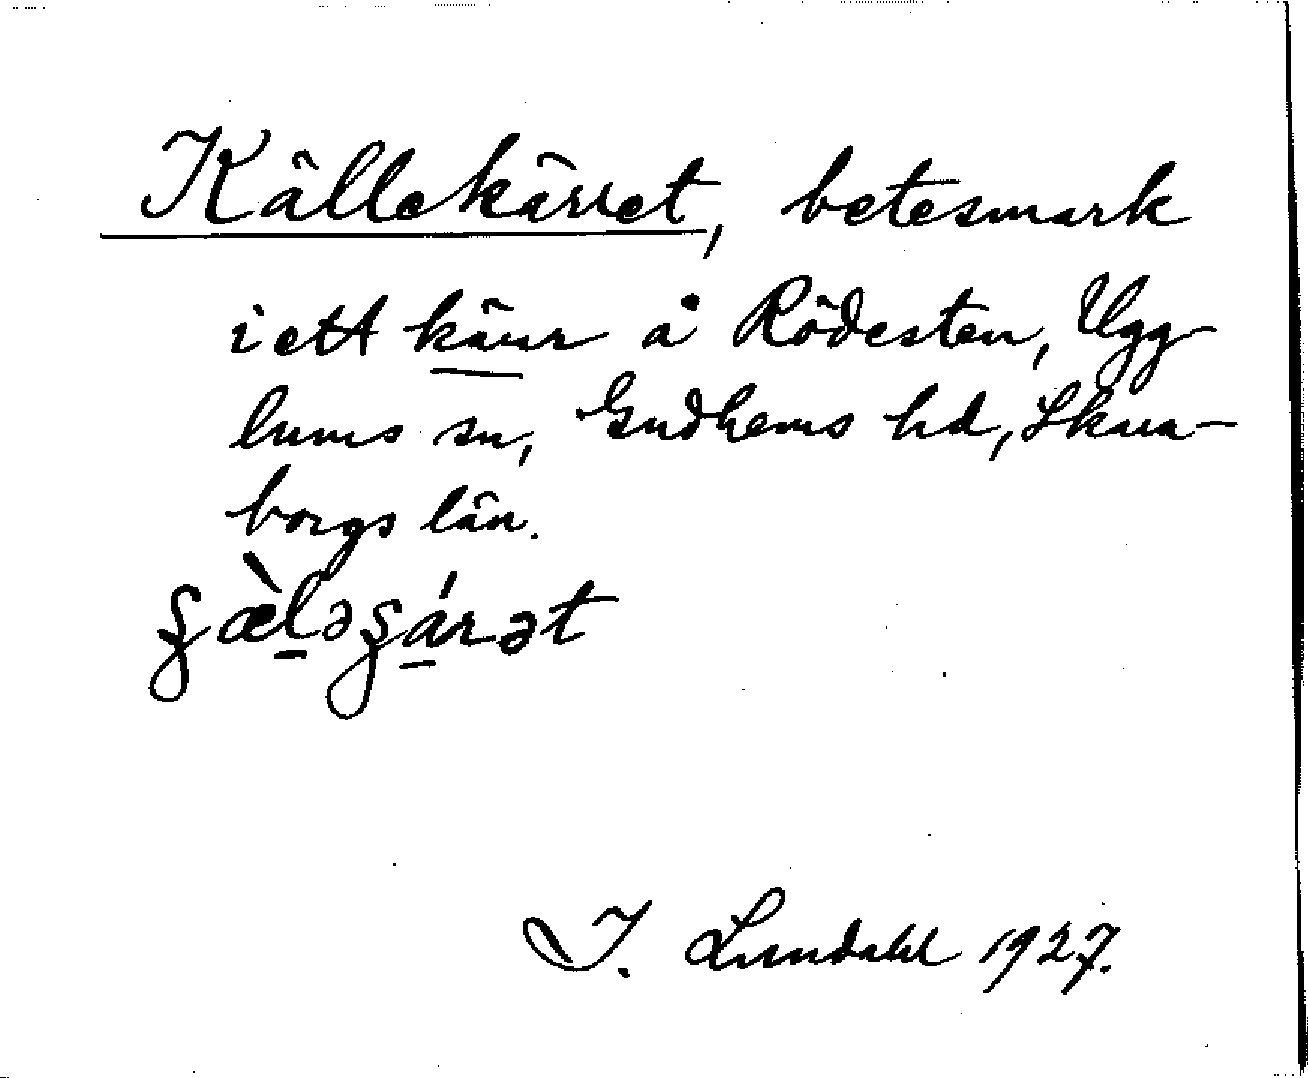 Källekärret, betesmark
i ett kärr å Rödesten, Ugg-
lums sn, Gudhems hd, Skara-
borgs län.
I. Lundahl 1927.